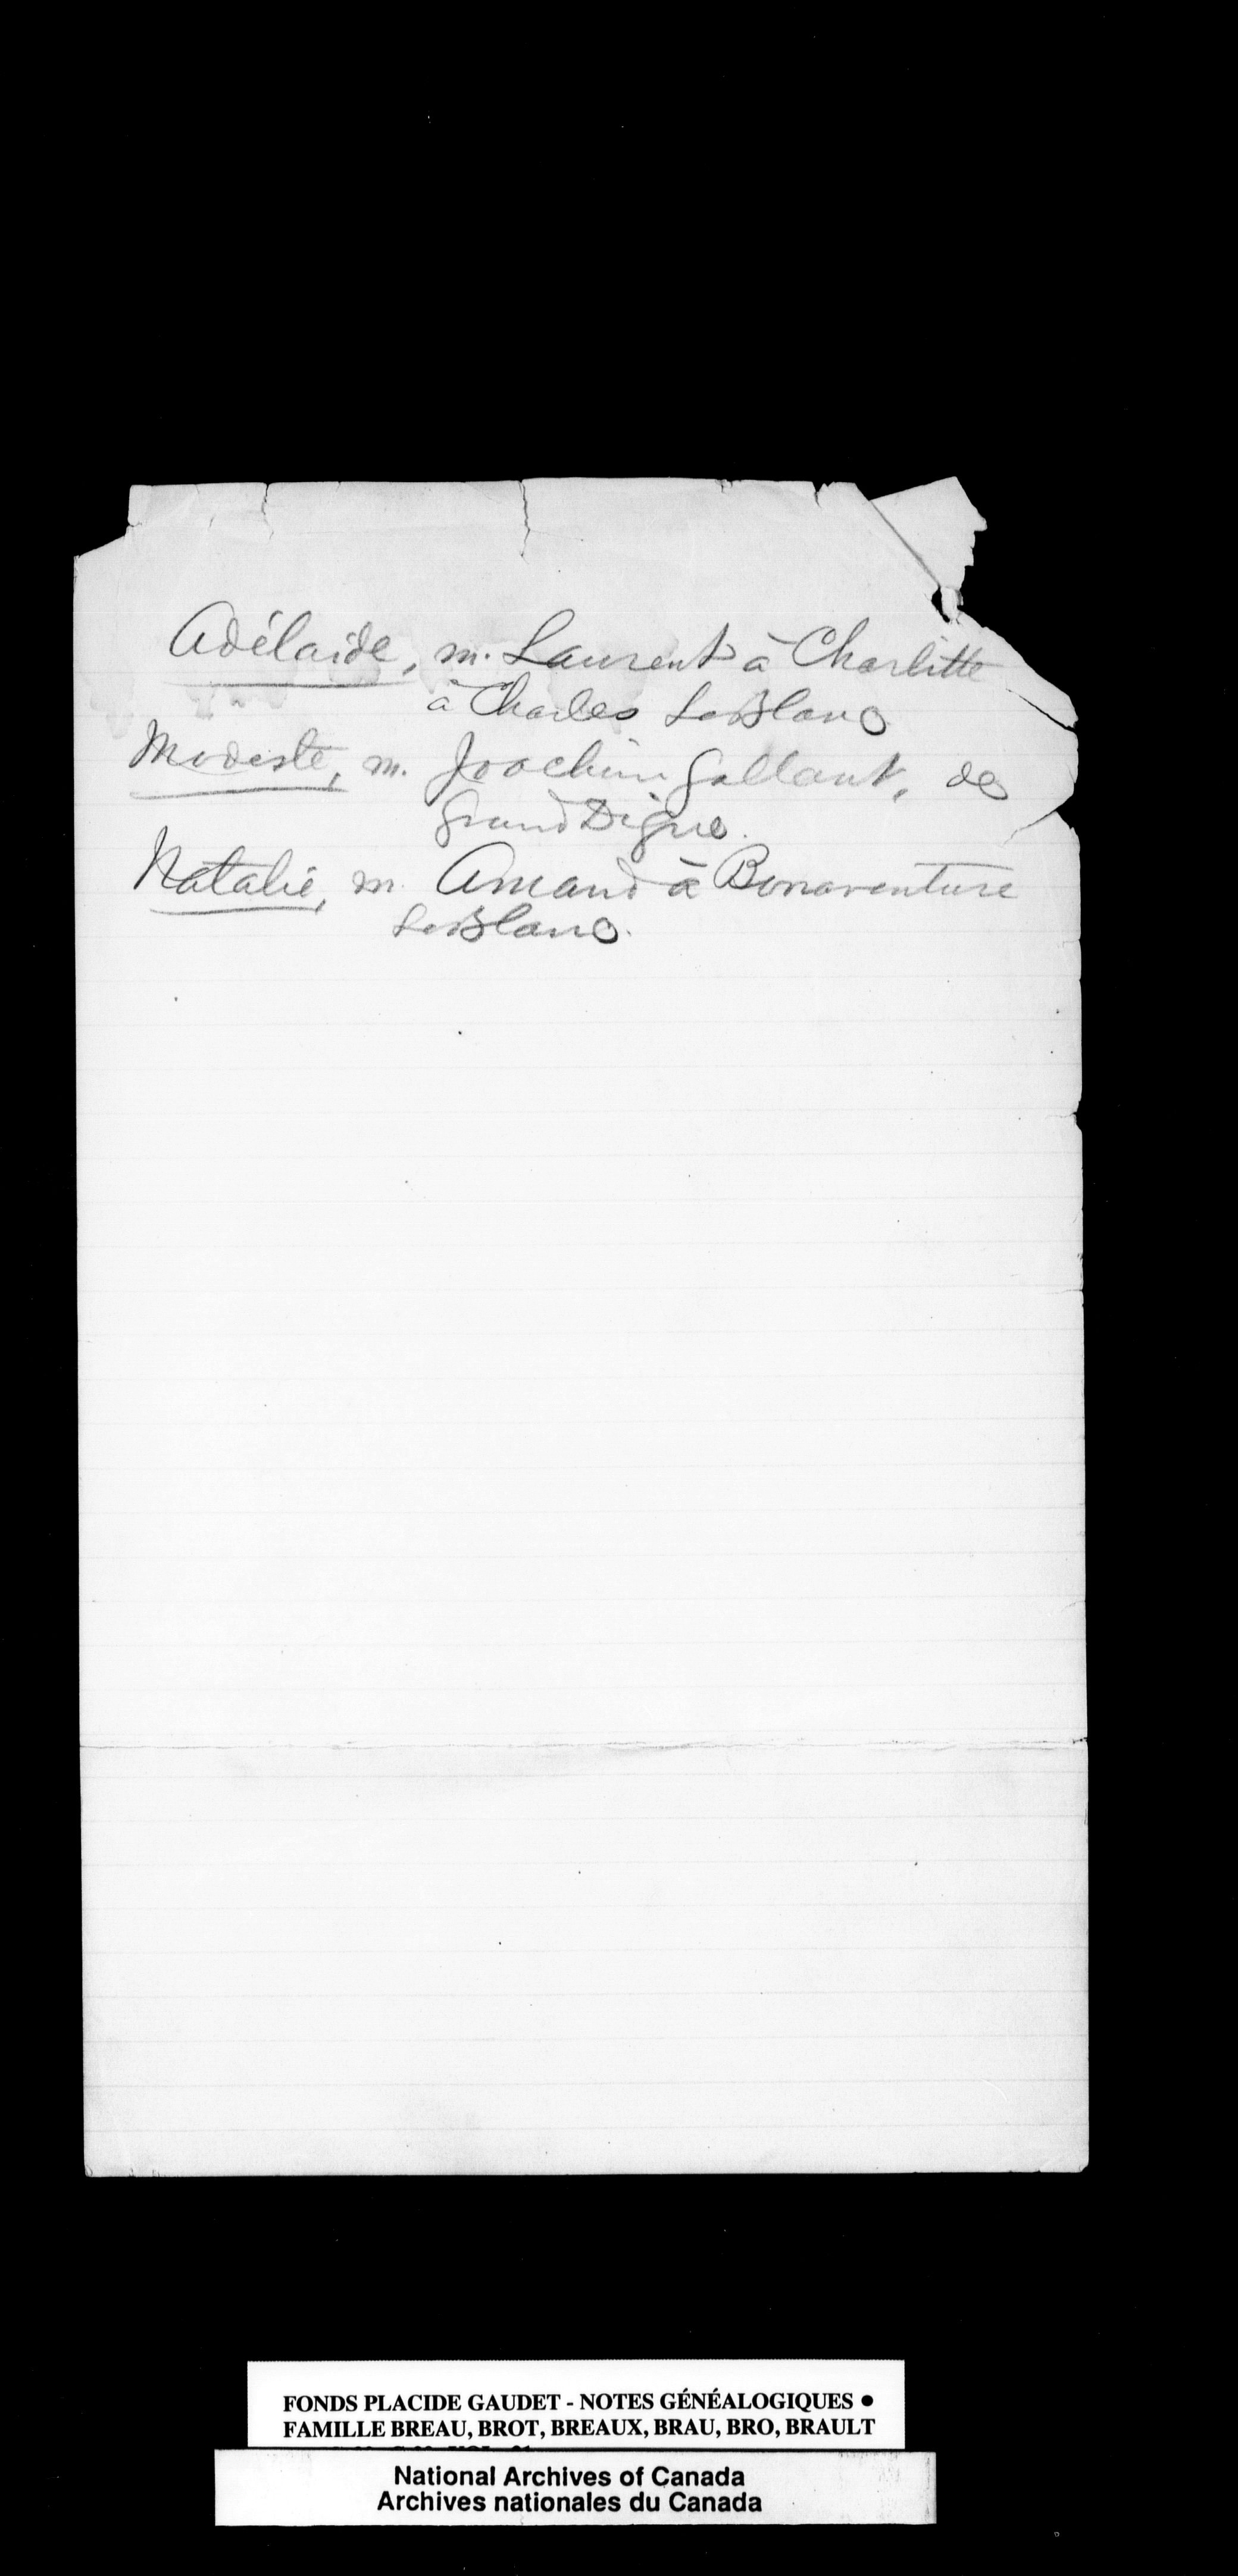 Adélaide, m. Laurent à Charlitte
à Charles LeBlanc
Modeste, m. Joachim Gallant, de
Grand Digue.
Natalie, m. Amand à Bonaventure
LeBlanc.
FONDS PLACIDE GAUDET - NOTES GÉNÉALOGIQUES •
FAMILLE BREAU, BROT, BREAUX, BRAU, BRO, BRAULT
National Archives of Canada
Archives nationales du Canada